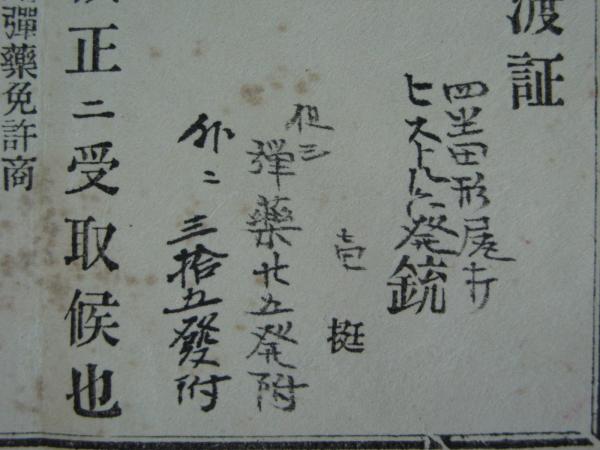 渡証
四半田形尾キ
ヒストル六発銃
壱挺
但シ
弾藥廿五発附
外ニ三拾五發附
正ニ受取候也
彈藥免許商